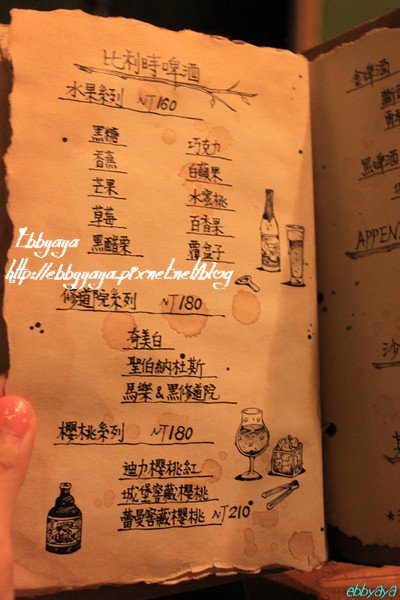 比利時啤酒
水果系列 NT160
黑糖 巧克力
香蕉 白蘋果
芒果 水蜜桃
草莓 百香果
黑醋栗 覆盆子
Ebbyaya
http://ebbyaya.pixnet.net/blog
修道院系列 NT180
奇美白
聖伯納杜斯
馬樂&黑修道院
櫻桃系列 NT180
迪力櫻桃紅
城堡窖藏櫻桃
蕾曼窖藏櫻桃 NT210
金啤酒
黑啤酒
APPEN
沙
ebbyaya